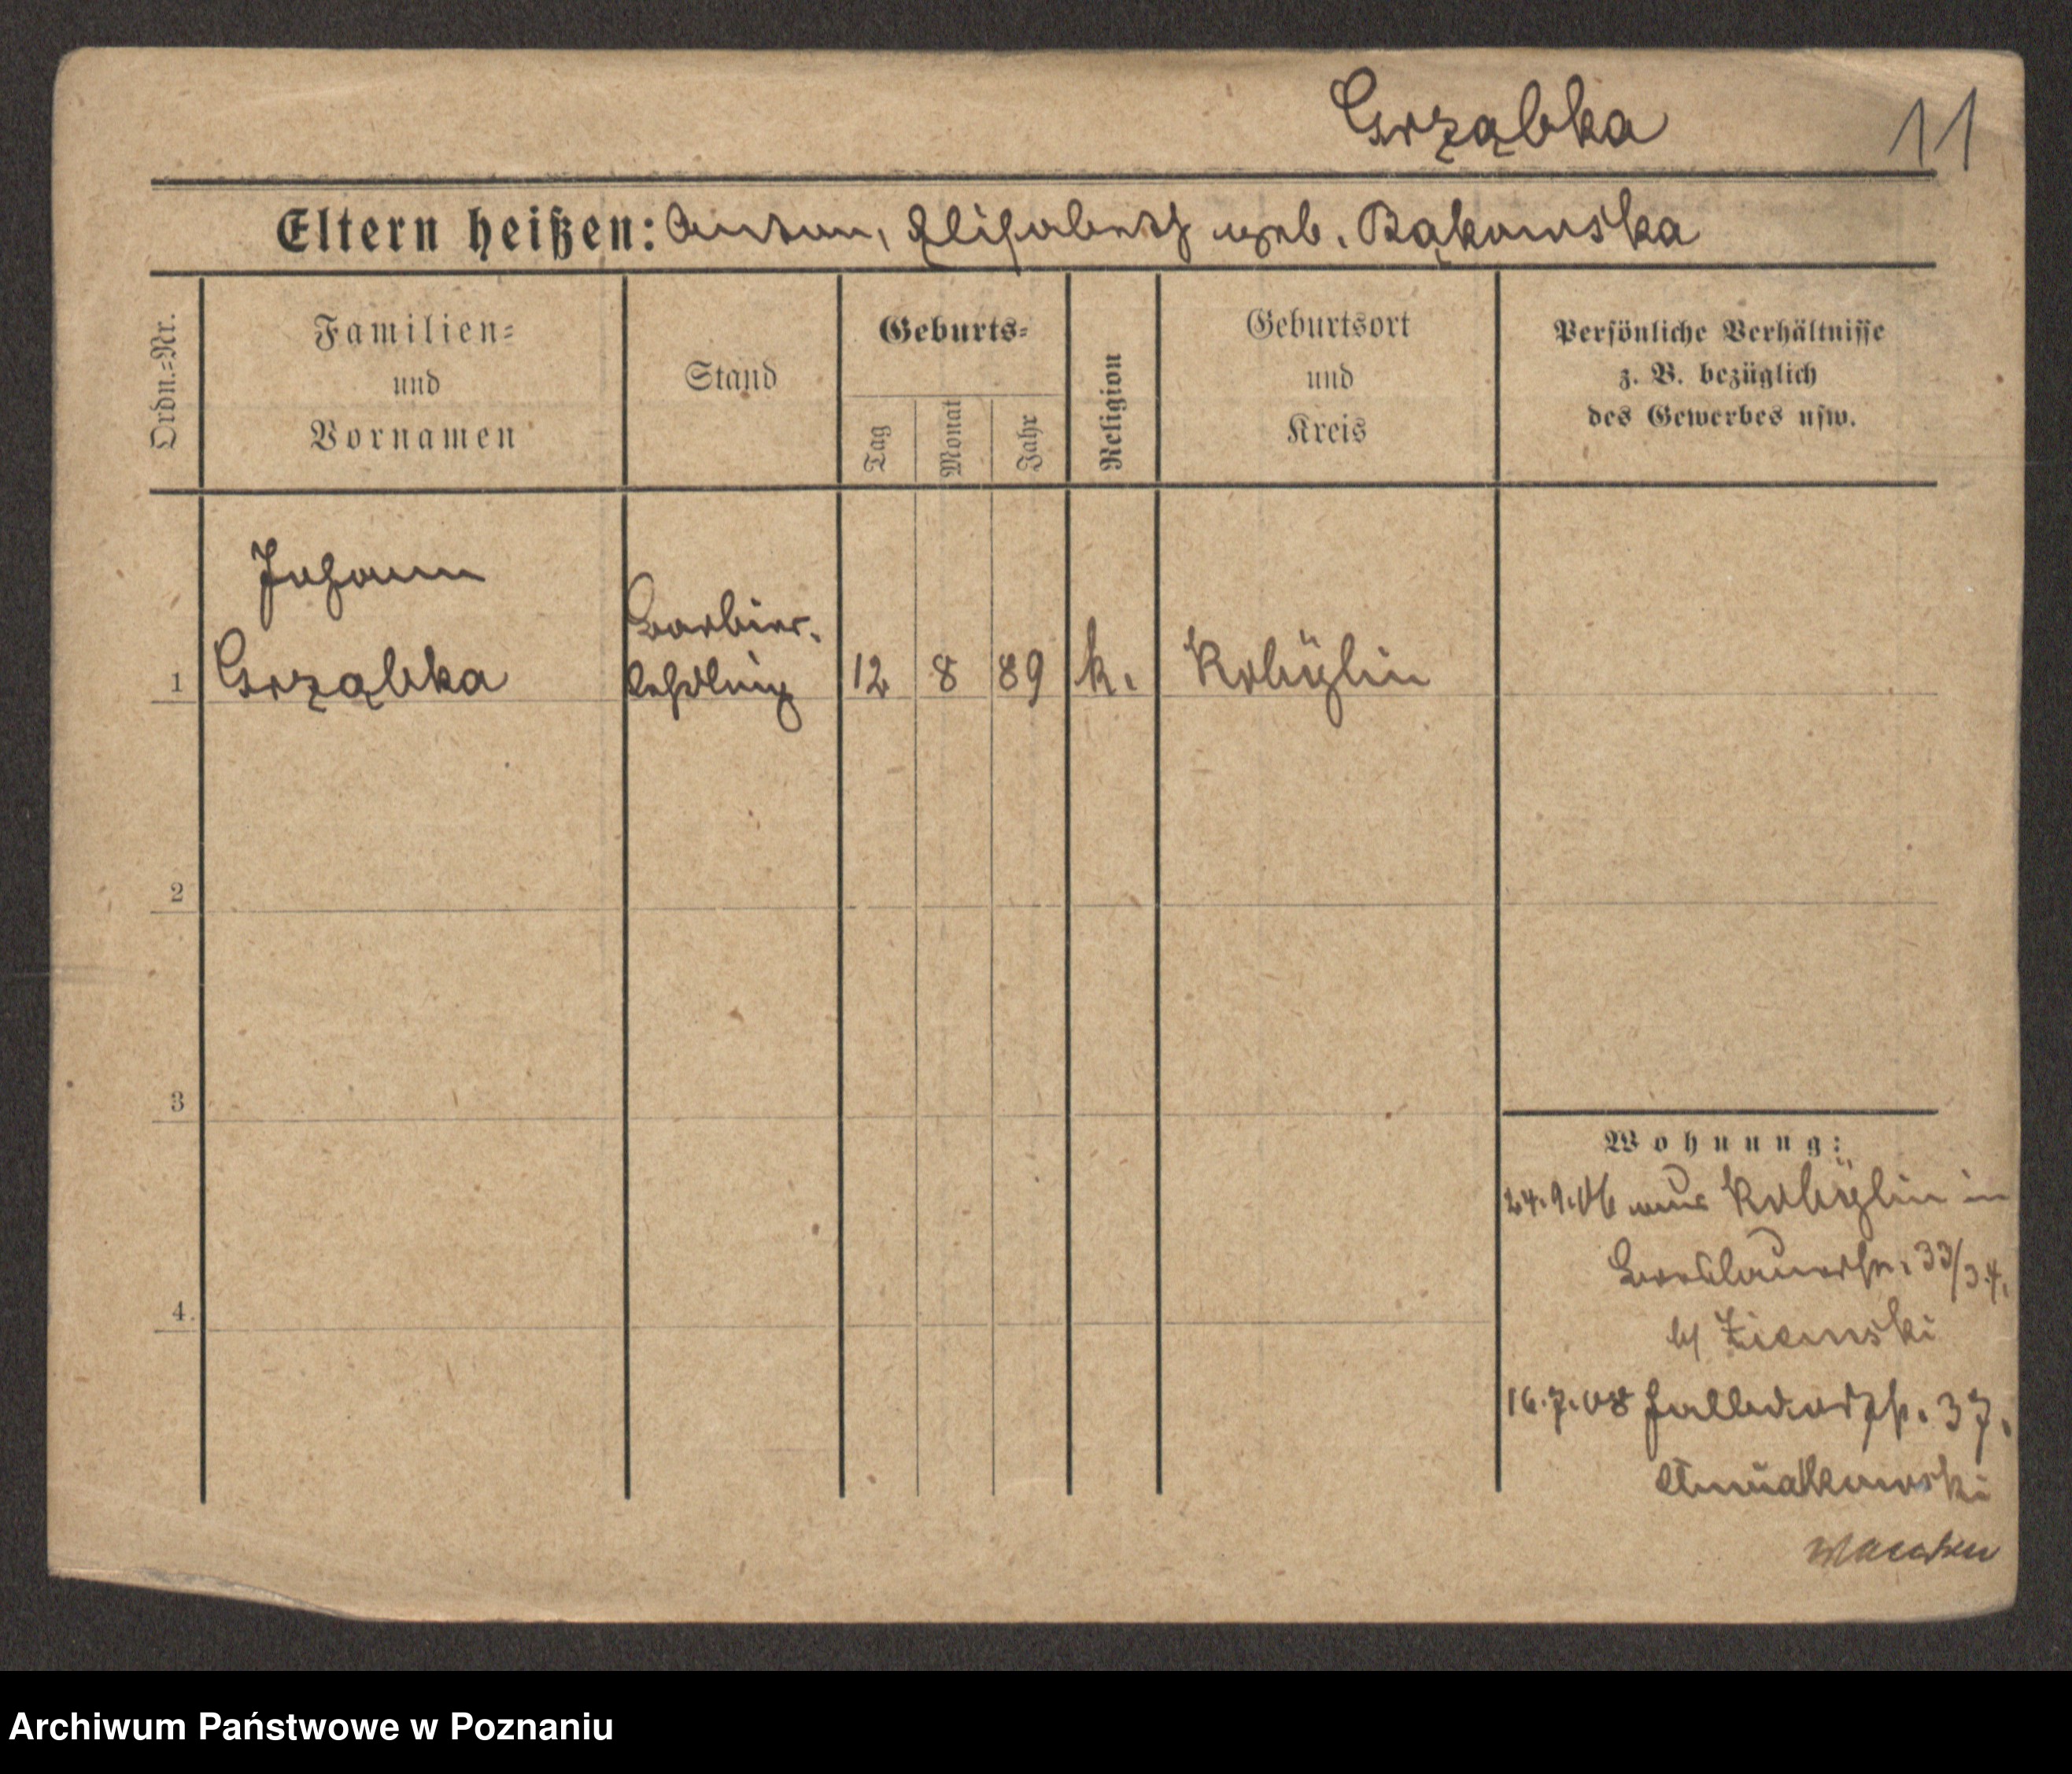 Grząbka 11
Eltern heißen: Anton, Elisabeth geb. Bąkowska
Ordn.=Nr.
Familien=
und
Vornamen
Stand
Geburts=
Tag
Monat
Jahr
Religion
Geburtsort
und
Kreis
Persönliche Verhältnisse
z. B. bezüglich
des Gewerbes usw.
Johann
Grząbka
Barbier.
lehrling
1
12 8 89 k. Kobylin
2
3
4.
Wohnung:
24.9.06 aus Kobylin in
Breslauerstr. 33/34.
b/ Ziemski
16.7.08 Halbdorfstr. 37.
Archiwum Państwowe w Poznaniu